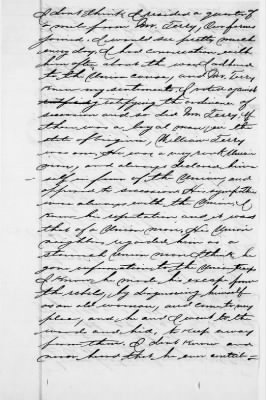 I dont think I resided a quarter of
a mile from Wm. Terry, Our farms
joined. I would see pretty much
every day, I had conversation with
him often about the war, I adhered
to the Union cause, and Mr. Terry
knew my sentiments. I voted against
ratifying the ordinance of
secession and so did Wm. Terry. If
there was a loyal man in the
state of Virginia, William Terry
was one. He was a very rank Union
man, and always declared him
self in favor of the Union and
opposed to secession. His sympathies
were always with the Union. I
know his reputation and it was
that of a Union man, His Union
neighbors regarded him a
staunch Union man. I think he
gave information to the Union troops
I know he made his escape from
the rebels, by disguising himself
as an old and came to my
place, and he and I went to the
woods and hid, to keep away
from them. I dont know and
never heard that he ever contrib=